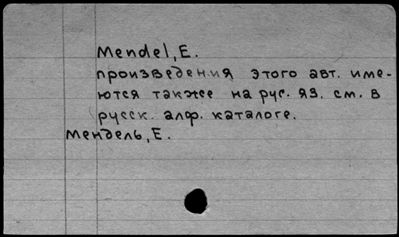 Mendel, E.
произведения этого авт. име-
ются также на рус. яз. см. в
русск. алф. каталоге.
Мендель, Е.